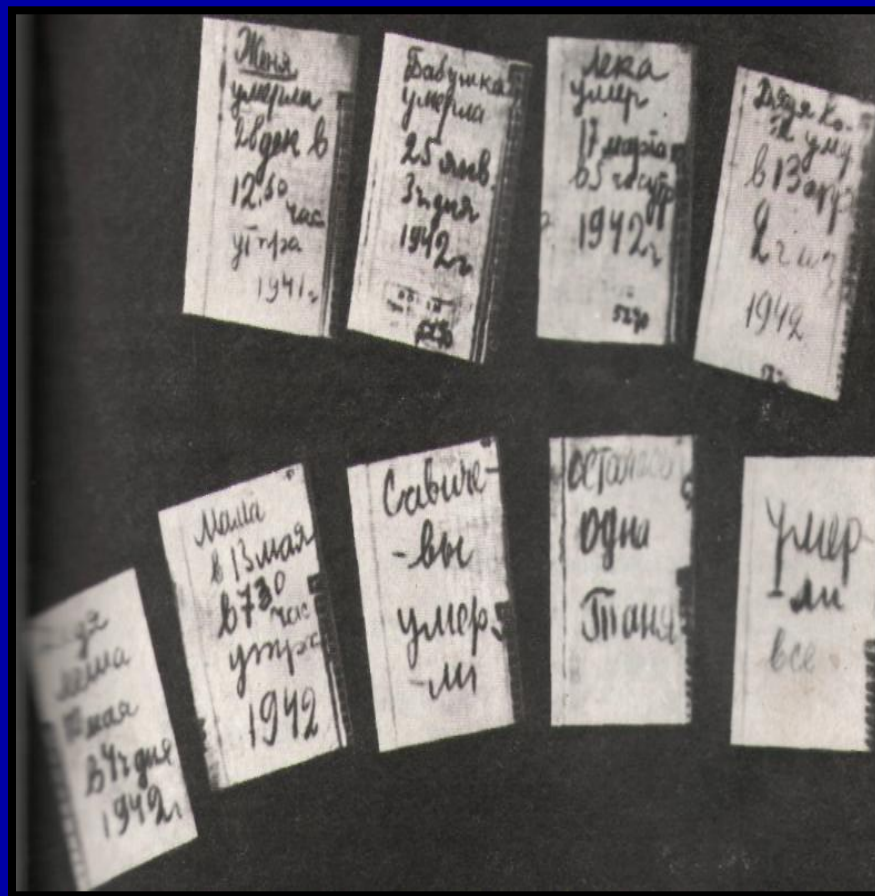 Женя
умерла
28 дек в
12.30
час
утра
1941 г
Бабушка
умерла
25 янв.
3 ч дня
1942 г
Лека
умер
17 марта
в 5 час утр
1942 г
Дядя
в 13 апр
2 ч
1942
Дядя
Леша
10 мая
в 4 ч дня
1942 г
Мама
в 13 мая
в 730
час
утра
1942
Савиче-
-вы
умер
-ли
Осталась
одна
Таня
Умер
-ли
все